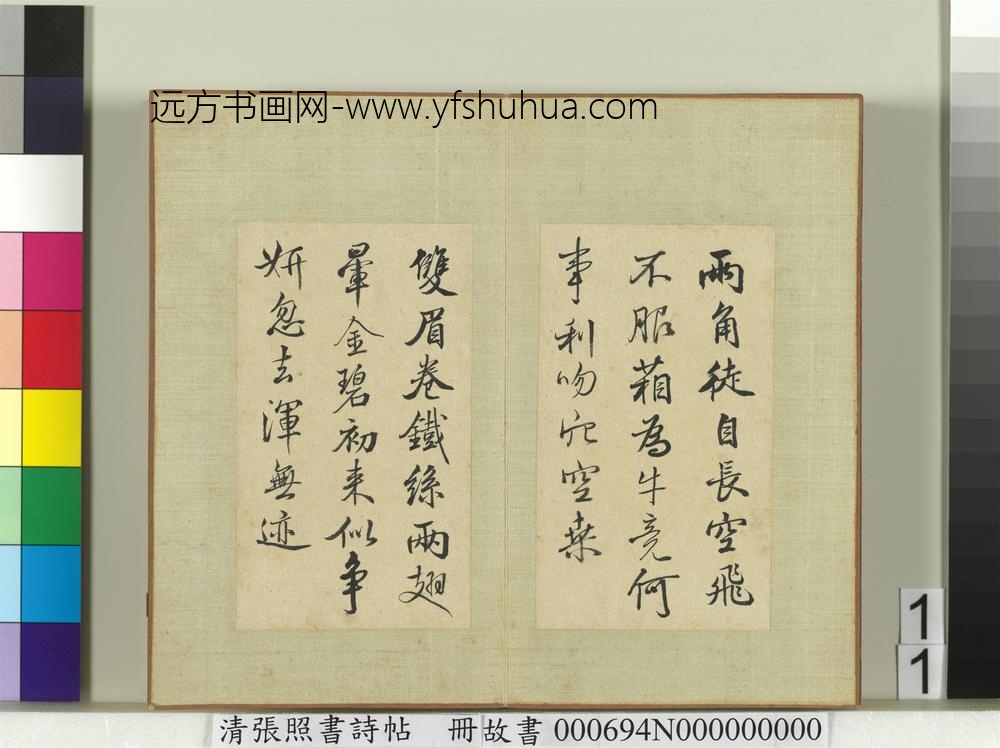 远方书画网-www.yfshuhua.com
兩角徒自長空飛
不服箱為牛竟何
事利吻穴空桒
雙眉卷鐵絲兩翅
暈金碧初来似争
妍忽去渾無迹
1
1
清張照書詩帖 冊故書 000694N000000000